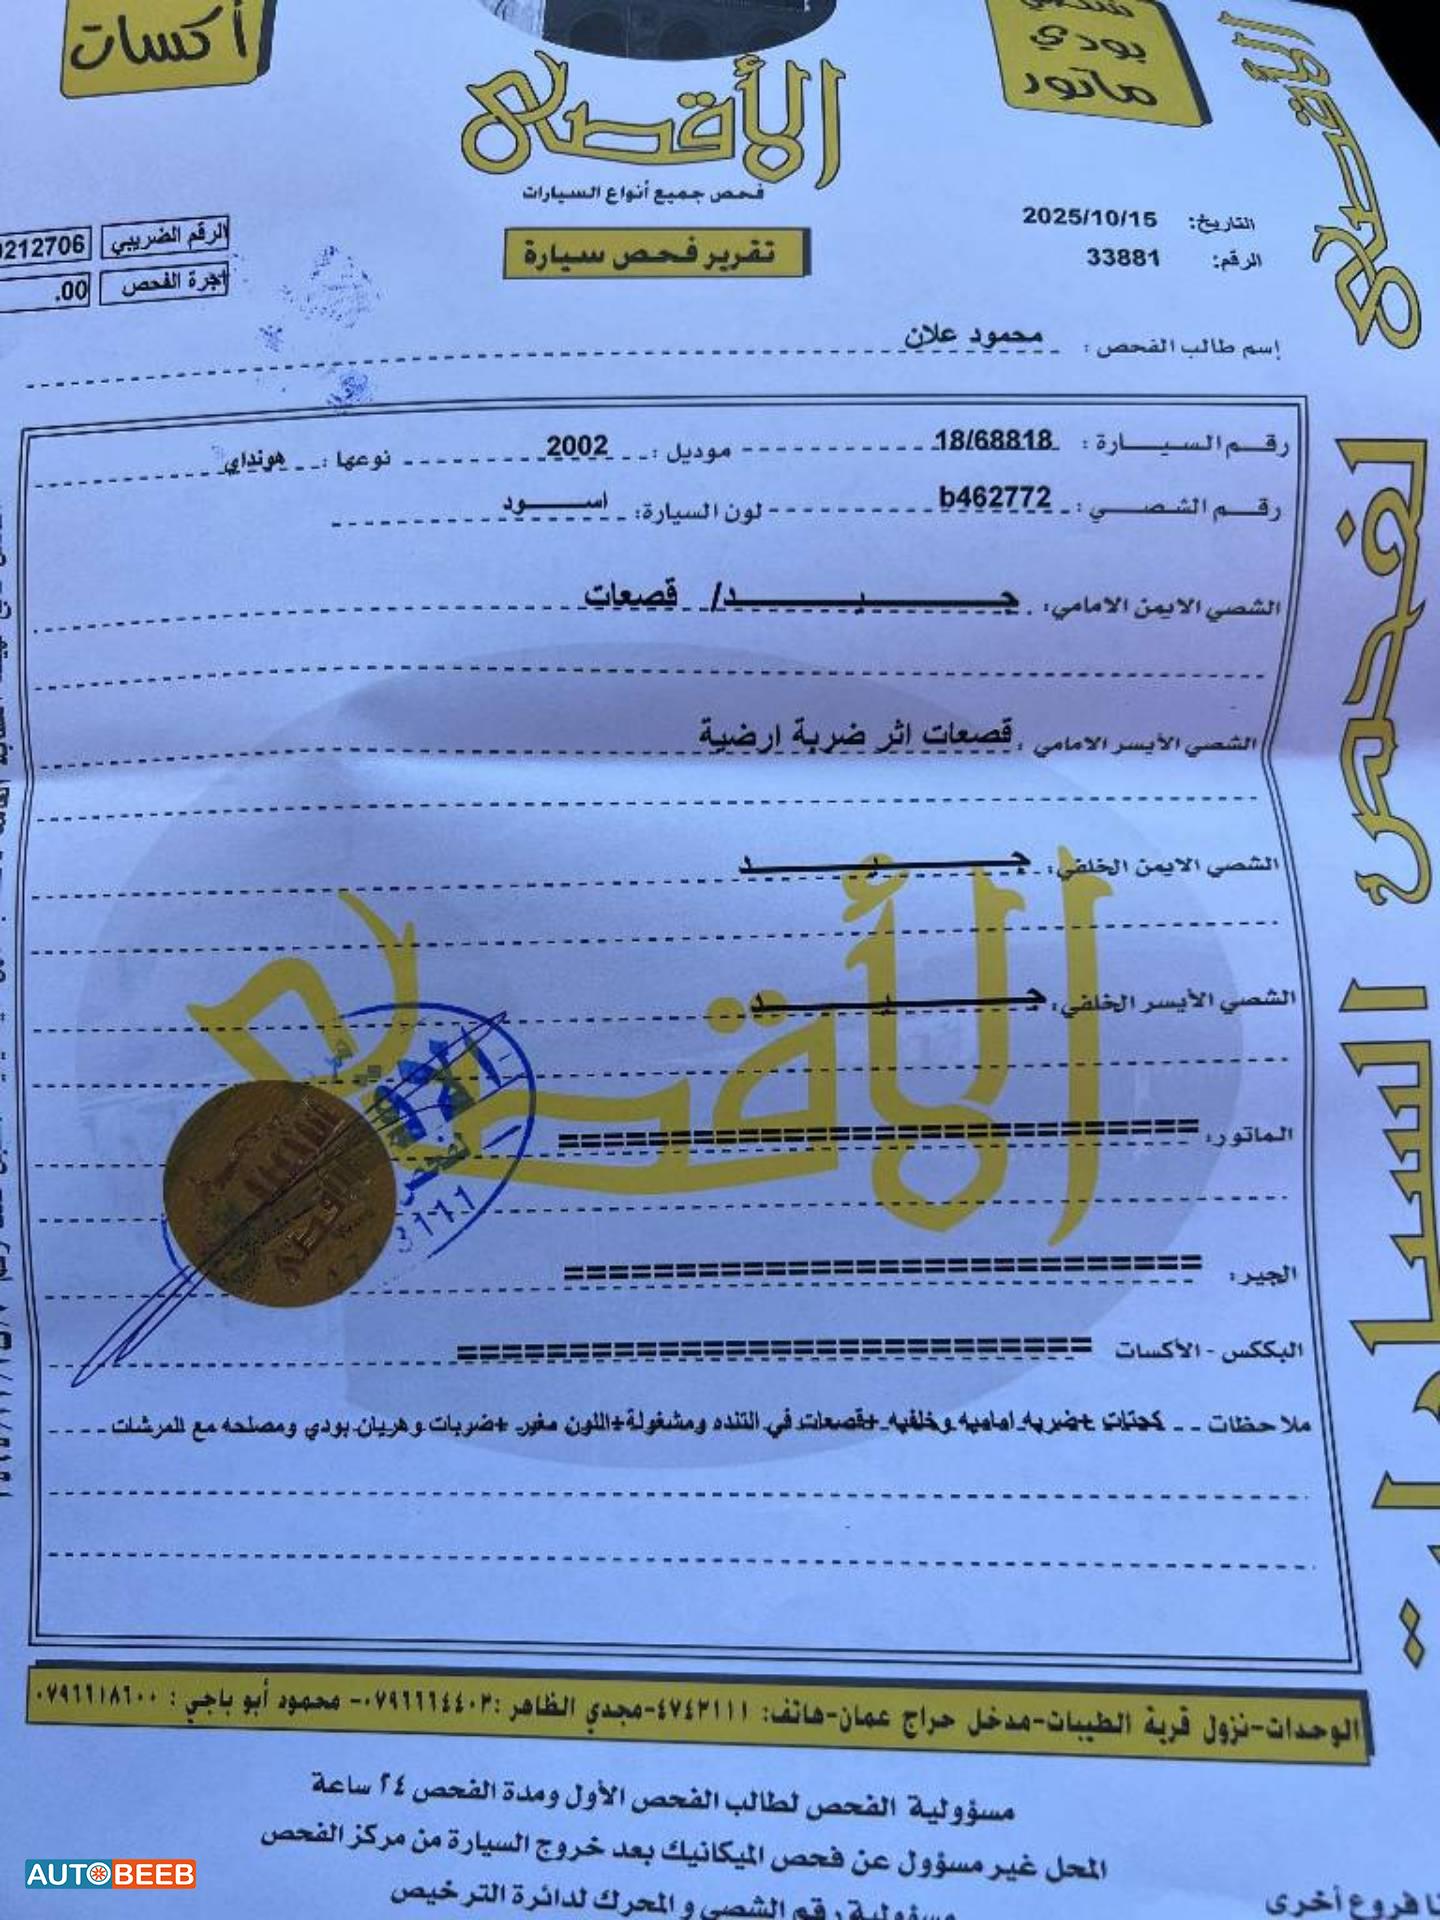 أكسات
بودي
ماتور
الأقصى
فحص جميع أنواع السيارات
تقرير فحص سيارة
التاريخ: 2025/10/15
الرقم: 33881
الرقم الضريبي 212706
اجرة الفحص 00.
إسم طالب الفحص : محمود علان
رقم السيارة : 18/68818 موديل : 2002 نوعها : هونداي
رقم الشصي : b462772 لون السيارة: اسود
الشصي الايمن الامامي: جيد/ قصعات
الشصي الأيسر الامامي : قصعات اثر ضربة ارضية
الشصي الايمن الخلفي: جيد
الشصي الأيسر الخلفي: جيد
الماتور: ==============================
الجير: ==============================
البككس - الأكسات ==============================
ملاحظات كحتات +ضربه اماميه وخلفيه +قصعات في التنده ومشغولة+اللون مغير +ضربات وهريان بودي ومصلحه مع المرشات
الوحدات-نزول قرية الطيبات-مدخل حراج عمان-هاتف: ٤٧٤٣١١١-مجدي الظاهر :٠٧٩٦٦٦٤٤٠٣- محمود أبو باجي : ٠٧٩٦٦١٨٦٠٠
مسؤولية الفحص لطالب الفحص الأول ومدة الفحص ٢٤ ساعة
المحل غير مسؤول عن فحص الميكانيك بعد خروج السيارة من مركز الفحص
مسؤولية رقم الشصي و المحرك لدائرة الترخيص
فروع أخرى
الأقصى
لفحص السيارات
AUTOBEEB